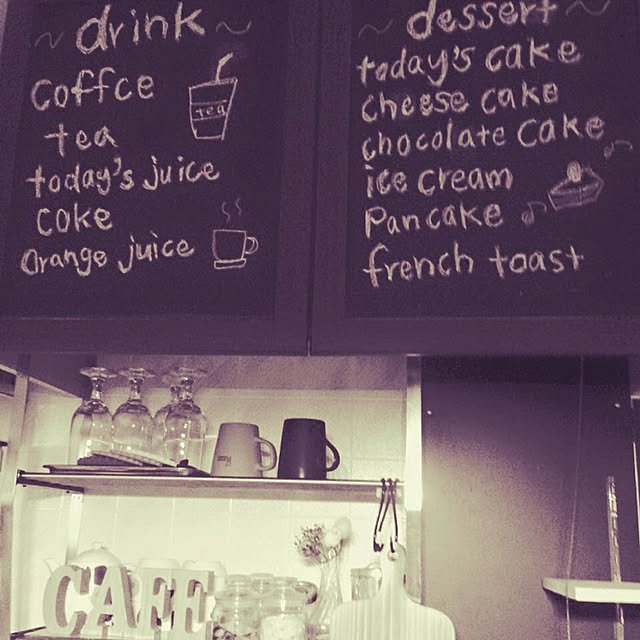 ~ drink ~
Coffee
tea
tea
today's juice
Coke
Orange juice
~ dessert ~
today's cake
Cheese cake
chocolate cake
ice cream
Pancake
french toast
CAFE